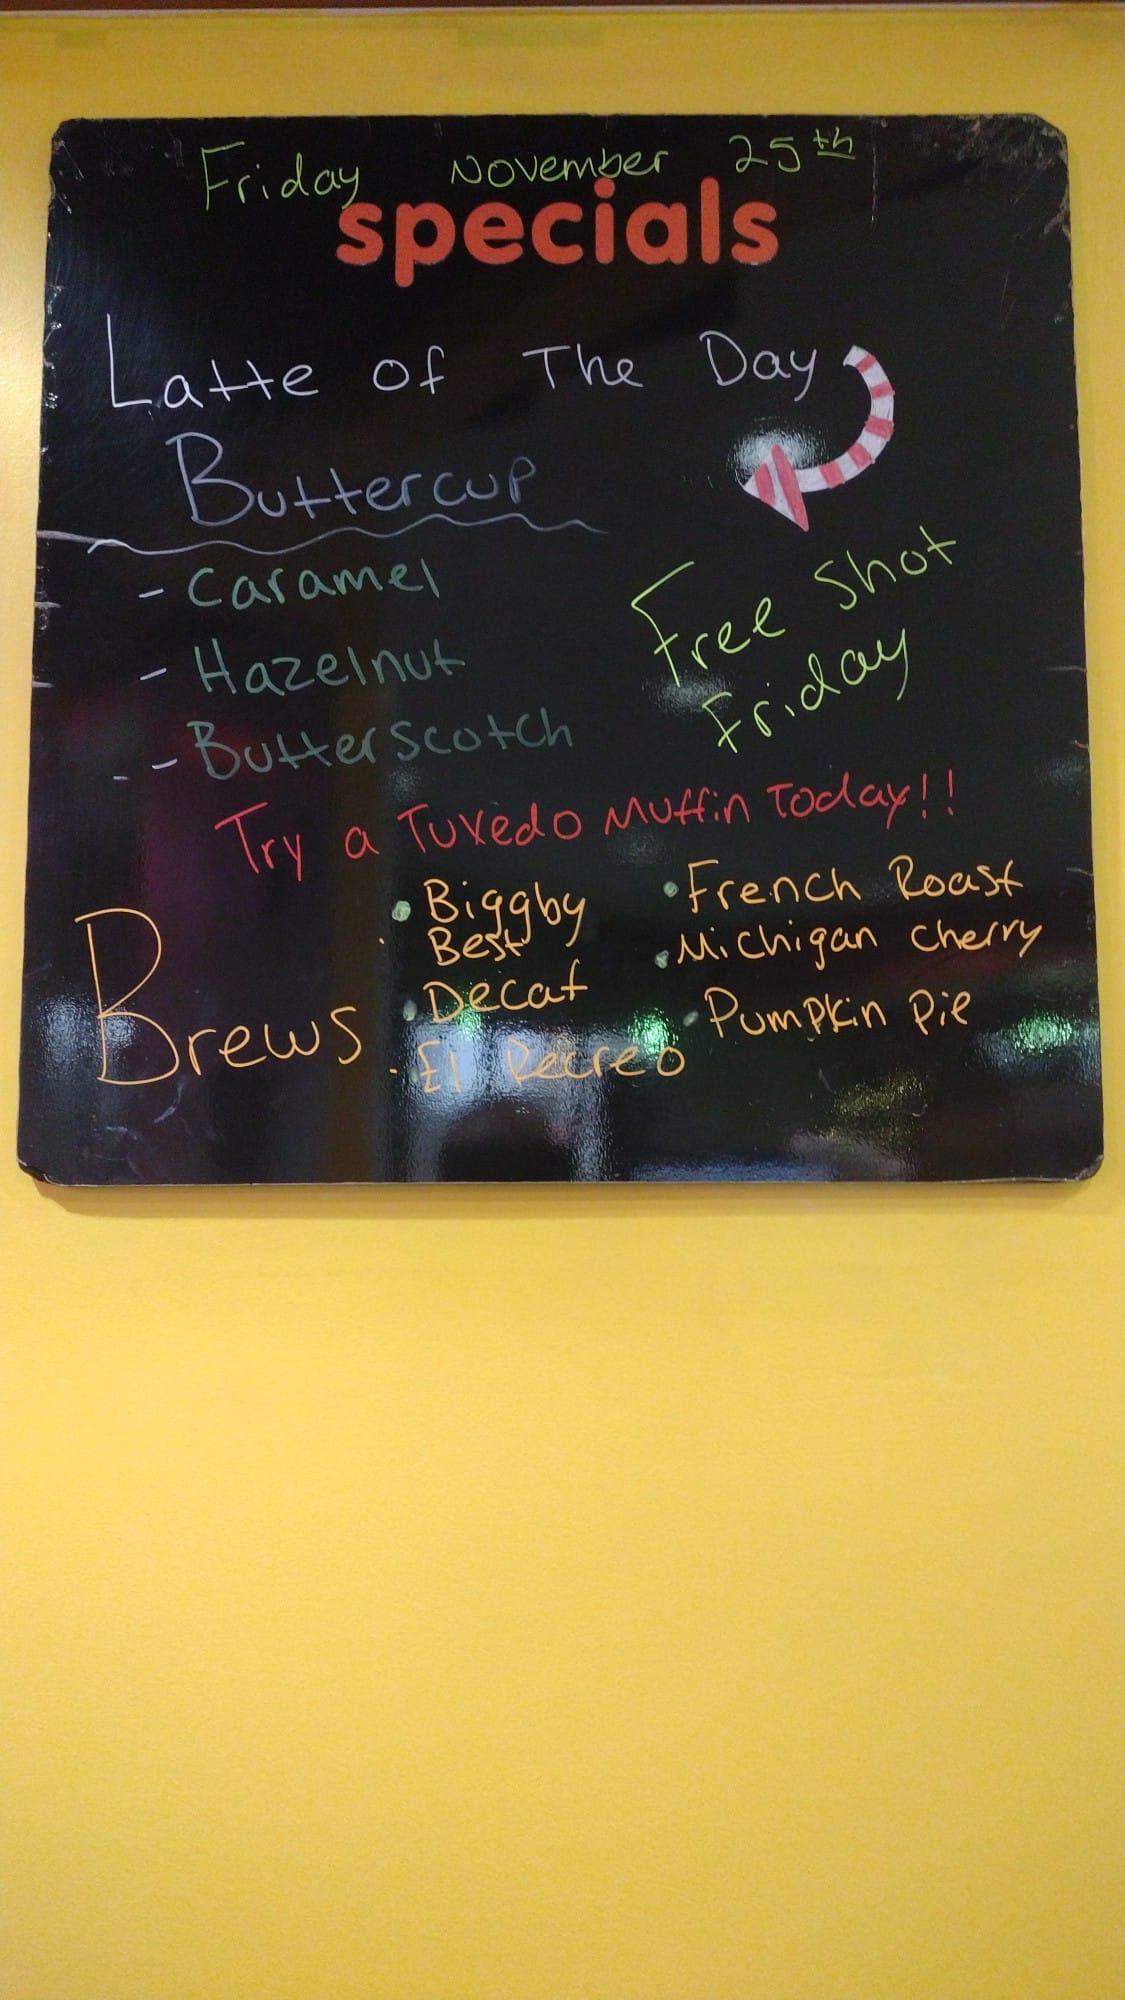 Friday November 25th
specials
Latte of The Day
Buttercup
- Caramel
- Hazelnut
- Butterscotch
Free Shot
Friday
Try a Tuxedo Muffin Today!!
Brews
• Biggby
Best
• Decaf
• El Recreo
• French Roast
• Michigan Cherry
• Pumpkin Pie